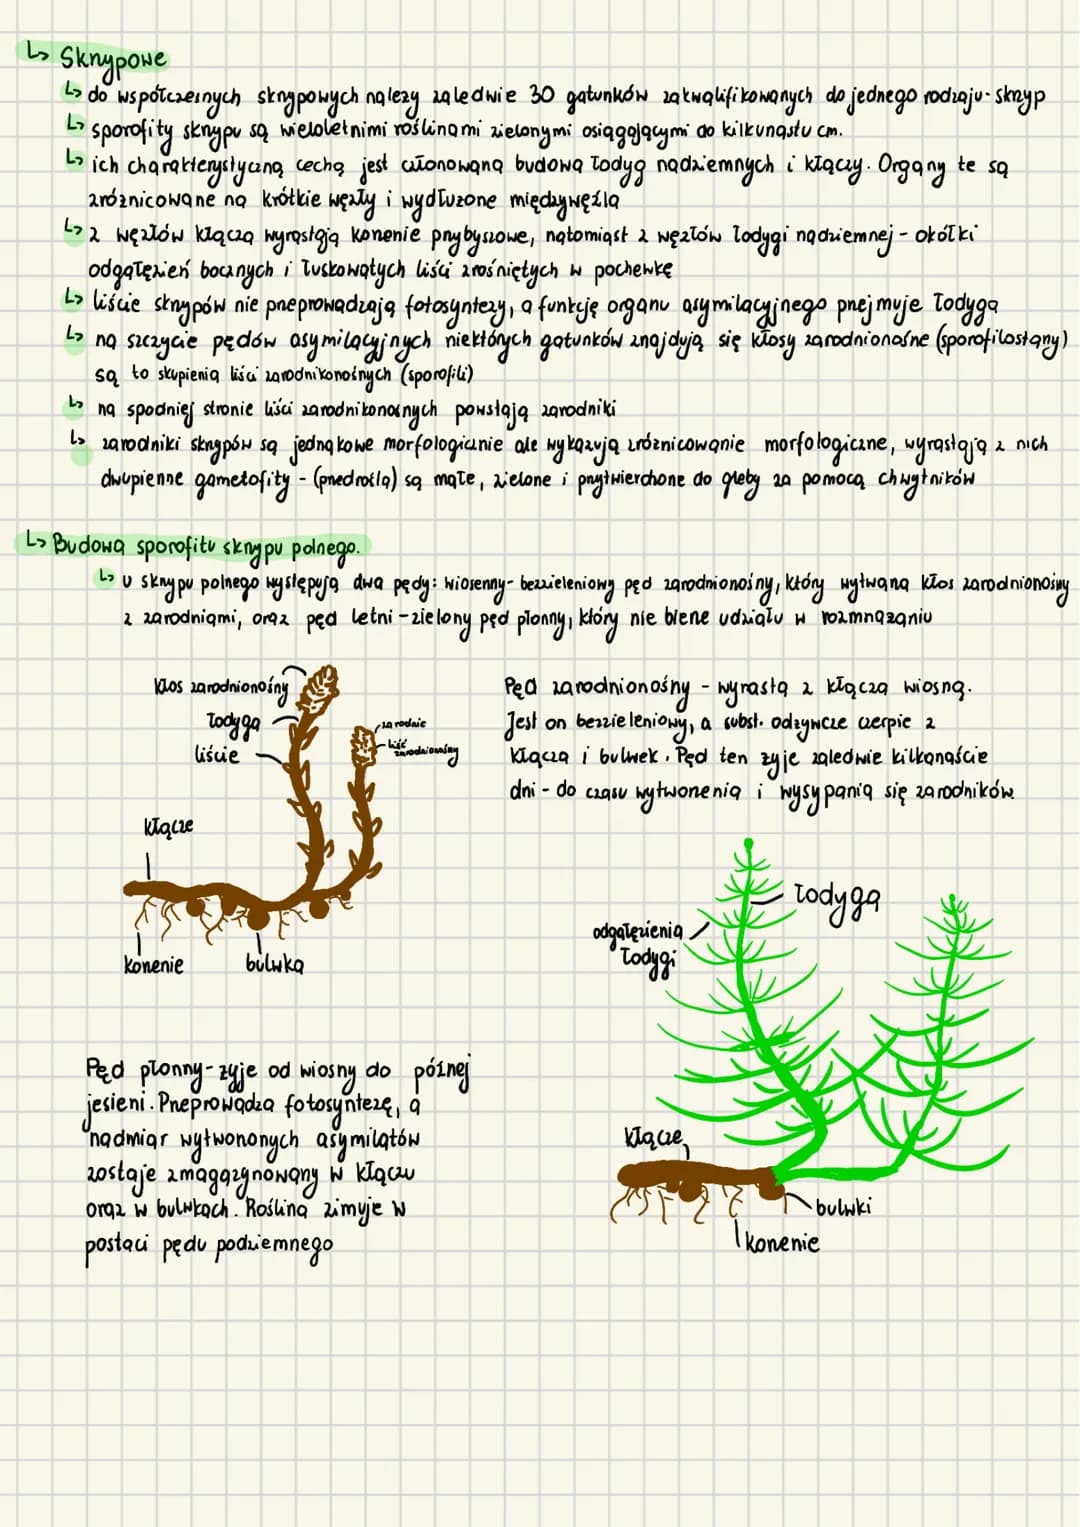 ↳ Skrzypowe
↳ do współczesnych skrzypowych należy zaledwie 30 gatunków zakwalifikowanych do jednego rodzaju - skrzyp
↳ sporofity skrzypu są wieloletnimi roślinami zielonymi osiągającymi do kilkunastu cm.
↳ ich charakterystyczną cechą jest członowana budowa łodyg nadziemnych i kłączy. Organy te są
zróżnicowane na krótkie węzły i wydłużone międzywęźla
↳ z węzłów kłącza wyrastają korzenie przybyszowe, natomiast z węzłów łodygi nadziemnej - okółki
odgałęzień bocznych i łuskowatych liści zrośniętych w pochewkę
↳ liście skrzypów nie przeprowadzają fotosyntezy, a funkcję organu asymilacyjnego przejmuje łodyga
↳ na szczycie pędów asymilacyjnych niektórych gatunków znajdują się kłosy zarodnionośne (sporofilostany)
są to skupienia liści zarodnikonośnych (sporofili)
↳ na spodniej stronie liści zarodnikonośnych powstają zarodniki
↳ zarodniki skrzypów są jednakowe morfologicznie ale wykazują zróżnicowanie morfologiczne, wyrastają z nich
dwupienne gametofity - (przedrośla) są małe, zielone i przytwierdzone do gleby za pomocą chwytników
↳ Budowa sporofitu skrzypu polnego.
↳ U skrzypu polnego występują dwa pędy: wiosenny - bezzieleniowy pęd zarodnionośny, który wytwarza kłos zarodnionośny
z zarodniami, oraz pęd letni - zielony pęd płonny, który nie bierze udziału w rozmnażaniu
kłos zarodnionośny
łodyga
liście
zarodnie
liść
zarodnionośny
kłącze
korzenie
bulwka
Pęd zarodnionośny - wyrasta z kłącza wiosną.
Jest on bezzieleniowy, a subst. odżywcze czerpie z
kłącza i bulwek. Pęd ten żyje zaledwie kilkanaście
dni - do czasu wytworzenia i wysypania się zarodników.
łodyga
odgałęzienia
łodygi
kłącze
bulwki
korzenie
Pęd płonny - żyje od wiosny do późnej
jesieni. Przeprowadza fotosyntezę, a
nadmiar wytworzonych asymilatów
zostaje zmagazynowany w kłączu
oraz w bulwkach. Roślina zimuje w
postaci pędu podziemnego